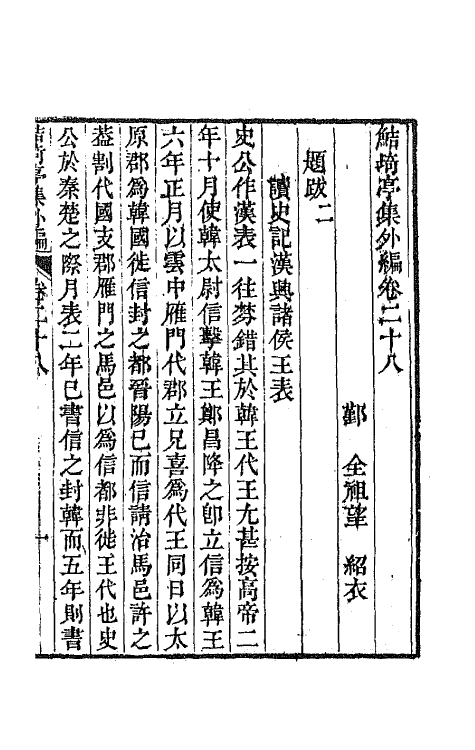 鮚埼亭集外編卷二十八
鄞　全祖望　紹衣
題跋二
讀史記漢興諸侯王表
史公作漢表一往棼錯其於韓王代王尤甚按高帝二
年十月使韓太尉信擊韓王鄭昌降之卽立信爲韓王
六年正月以雲中雁門代郡立兄喜爲代王同日以太
原郡爲韓國徙信封之都晉陽已而信請治馬邑許之
葢割代國支郡雁門之馬邑以爲信都非徙王代也史
公於秦楚之際月表二年已書信之封韓而五年則書
鮚埼亭集外編　卷二十八　一